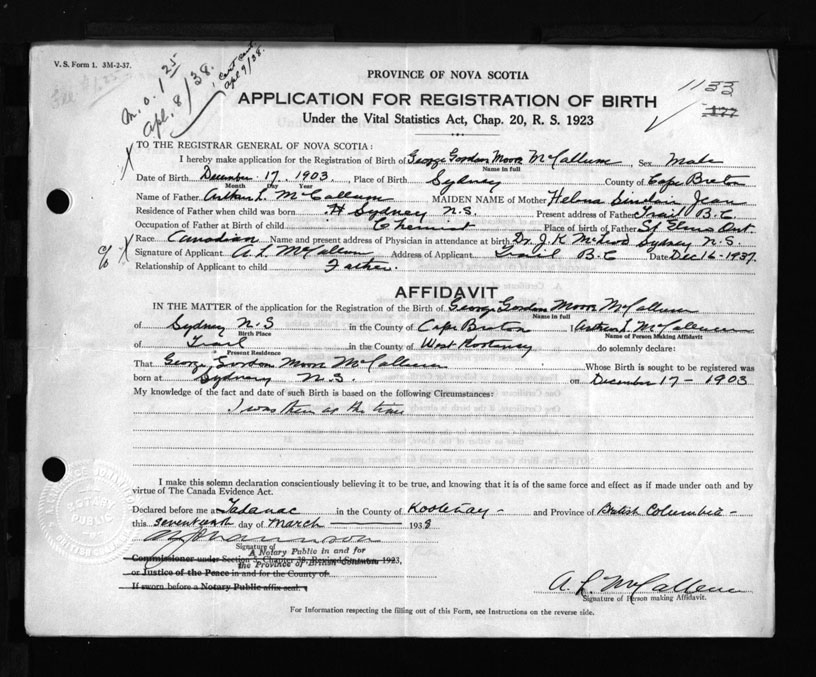 V. S. Form 1. 3M-2-37.
M.O. 1 25
Apl. 8/38.
Apl 9/38.
1133
177
PROVINCE OF NOVA SCOTIA
APPLICATION FOR REGISTRATION OF BIRTH
Under the Vital Statistics Act, Chap. 20, R. S. 1923
TO THE REGISTRAR GENERAL OF NOVA SCOTIA:
I hereby make application for the Registration of Birth of George Gordon Moore McCallum, Sex Male
Name in full
Date of Birth December 17 1903 Place of Birth Sydney County of Cape Breton
Month Day Year
Name of Father Arthur L. McCallum MAIDEN NAME of Mother Helena Sinclair Jean
Residence of Father when child was born Sydney N.S. Present address of Father Trail B.C.
Occupation of Father at Birth of child Chemist Place of birth of Father St Elmo Ont.
Race Canadian Name and present address of Physician in attendance at birth Dr. J. K. McLeod Sydney N.S.
Signature of Applicant A. L. McCallum Address of Applicant Trail B.C Date Dec 16 - 1937.
Relationship of Applicant to child Father.
AFFIDAVIT
IN THE MATTER of the application for the Registration of the Birth of George Gordon Moore McCallum
Name in full
of Sydney N.S in the County of Cape Breton I Arthur L. McCallum
Birth Place Name of Person Making Affidavit
of Trail in the County of West Kootenay do solemnly declare:
Present Residence
That George Gordon Moore McCallum Whose Birth is sought to be registered was
born at Sydney N.S. on December 17 - 1903
My knowledge of the fact and date of such Birth is based on the following Circumstances:
I was there at the time
I make this solemn declaration conscientiously believing it to be true, and knowing that it is of the same force and effect as if made under oath and by
virtue of The Canada Evidence Act.
Declared before me at Tadanac in the County of Kootenay - and Province of British Columbia -
this seventeenth day of March 1938
Signature of
A Notary Public in and for
Commissioner under Section 3, Chapter 38, Revised Statutes 1923,
the Province of British Columbia
or Justice of the Peace in and for the County of
If sworn before a Notary Public affix seal.
NOTARY PUBLIC
A. L. McCallum
Signature of Person making Affidavit.
For Information respecting the filling out of this Form, see Instructions on the reverse side.